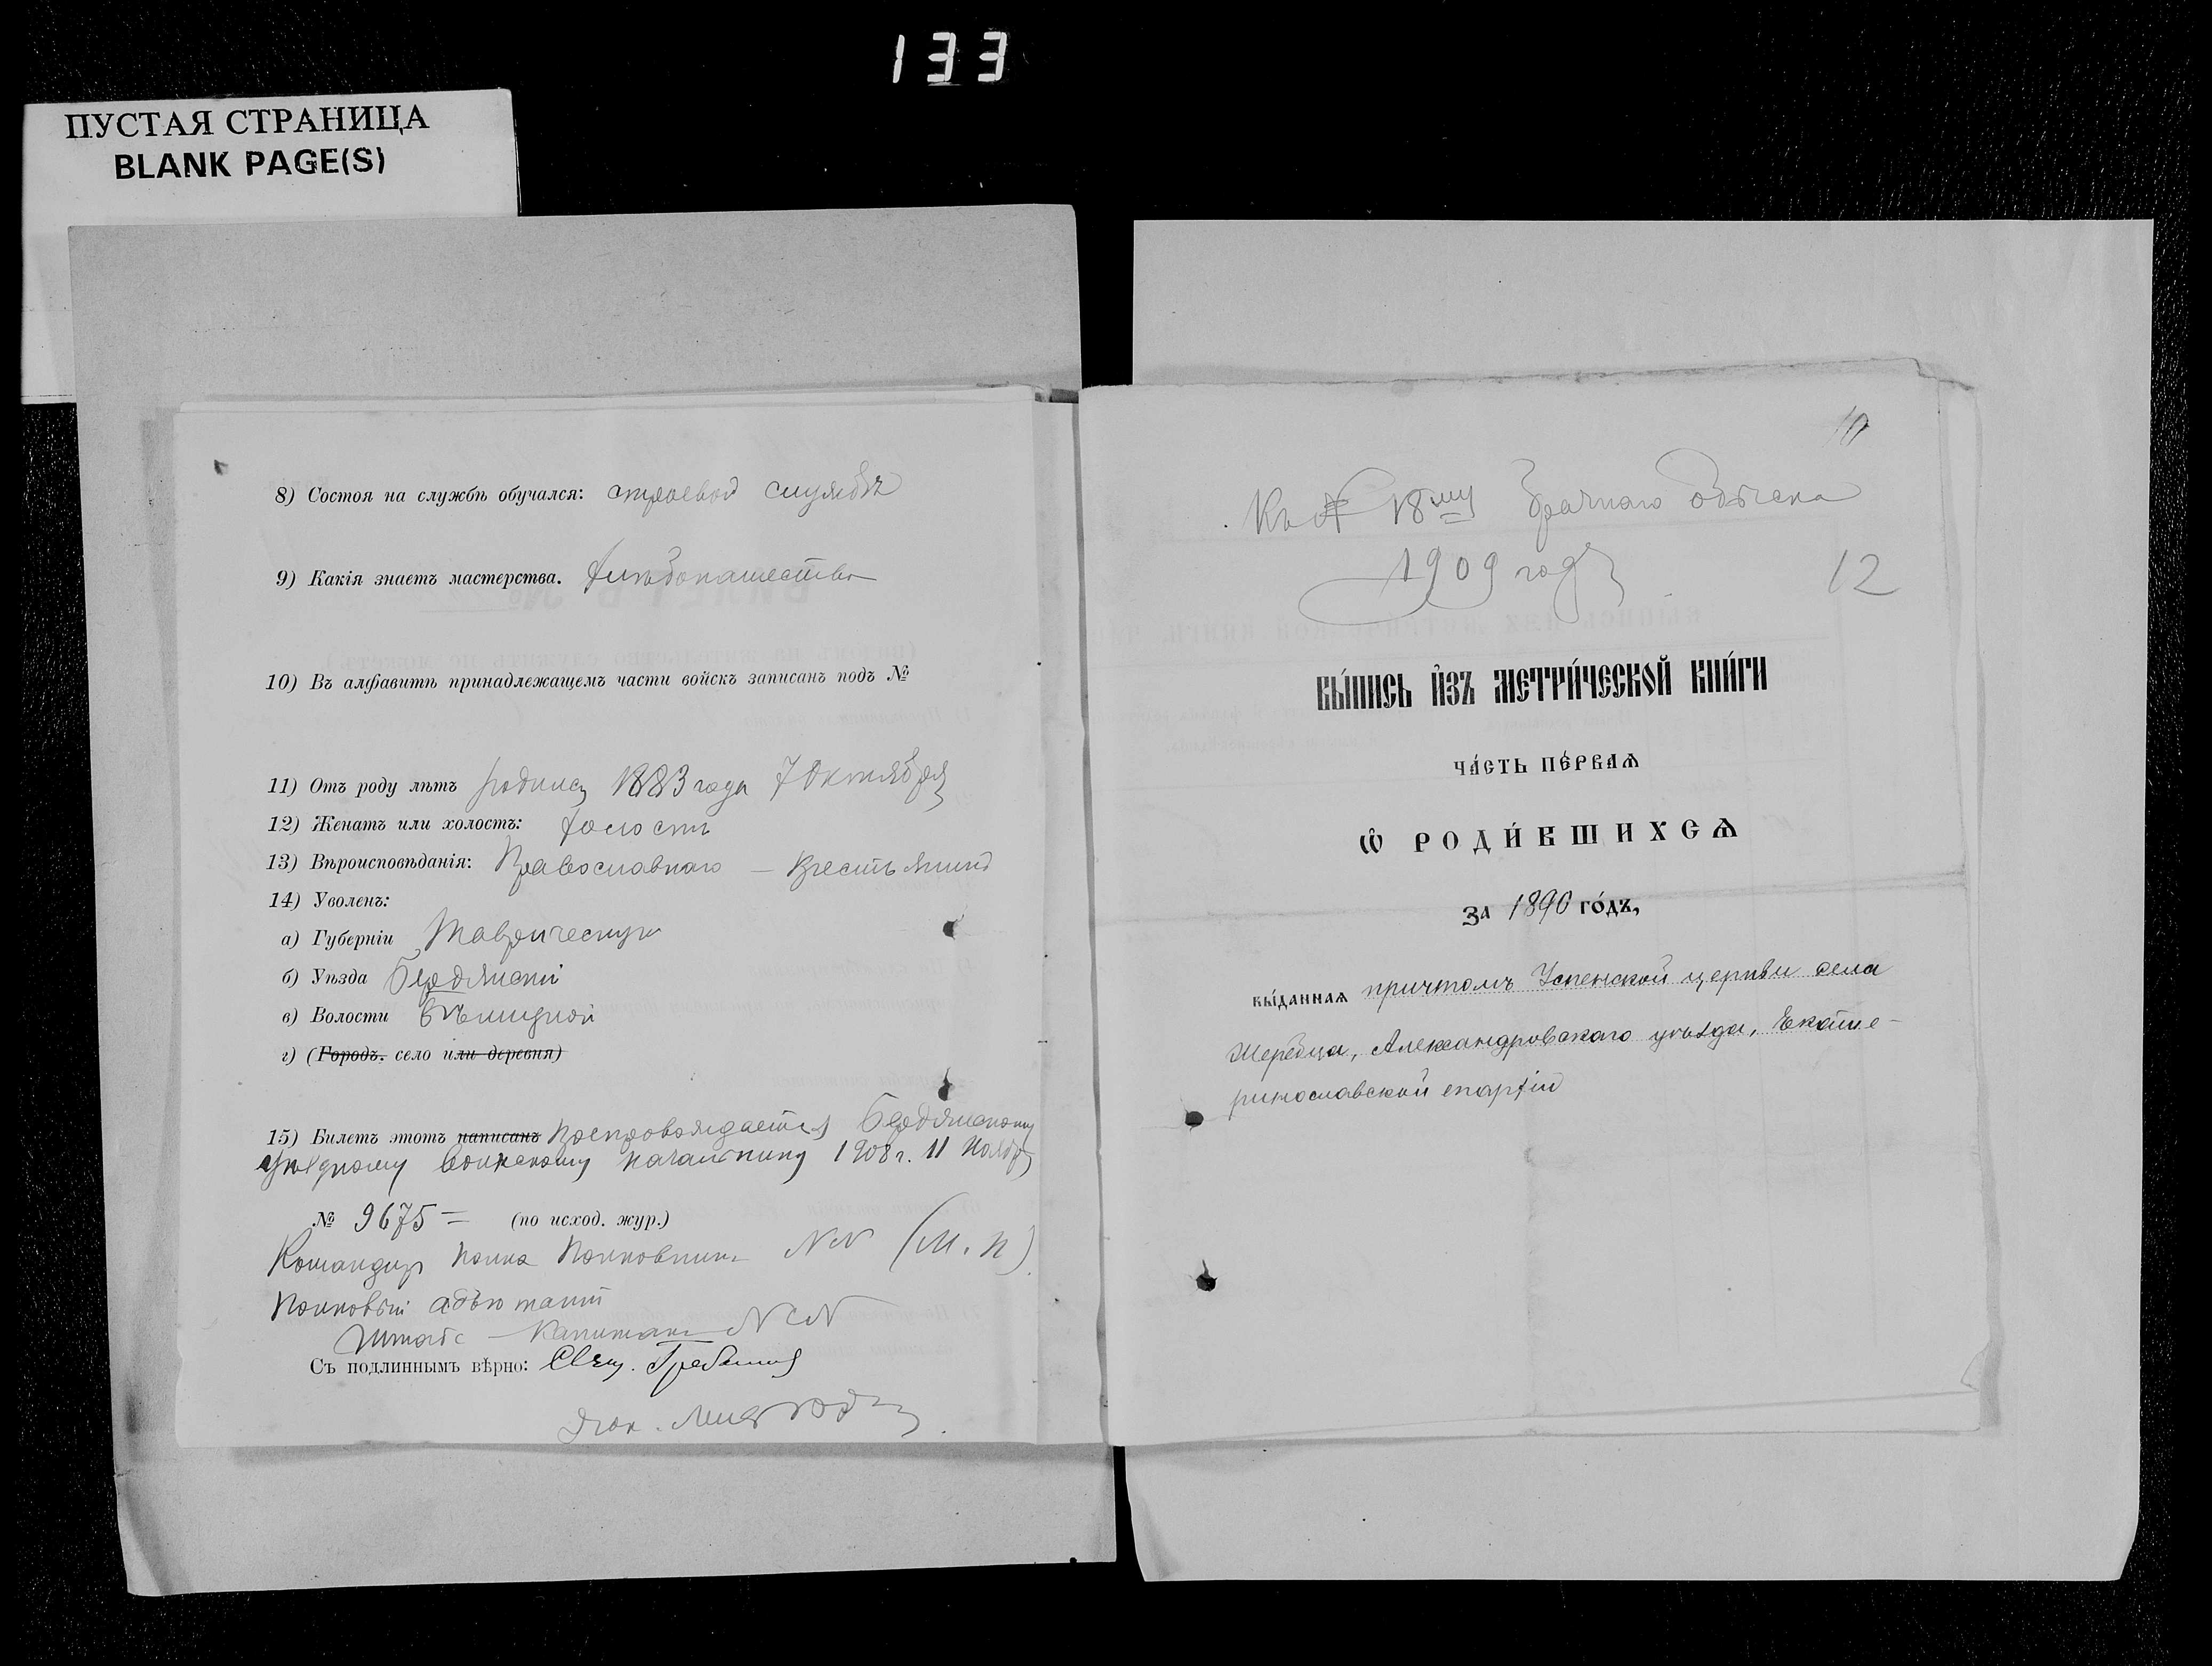 133
ПУСТАЯ СТРАНИЦА
BLANK PAGE(S)
8) Состоя на службѣ обучался: строевой службѣ
9) Какія знаетъ мастерства. Хлѣбопашество
10) Въ алфавитѣ принадлежащемъ части войскъ записанъ подъ №
11) Отъ роду лѣтъ родился 1883 года 7 Октября
12) Женатъ или холостъ: холостъ
13) Вѣроисповѣданія: Православнаго — Крестьянинъ
14) Уволенъ:
а) Губерніи Таврическую
б) Уѣзда Бердянскій
в) Волости
г) (Городъ. село или деревня)
15) Билетъ этотъ написанъ препровождается Бердянскому
Уѣздному воинскому начальнику 1908 г. 11 Ноября
№ 9675 = (по исход. жур.)
Командиръ полка Полковникъ NN (М. П)
Полковый адъютантъ
Штабс - Капитанъ NN
Съ подлиннымъ вѣрно: Свящ.
10
Къ № 18му брачнаго обыска
1909 года
12
вы́пись и҆зъ метри́ческой кни́ги
ча́сть пе́рваѧ
ѽ роди́вшихсѧ
за 1890 го́дъ,
вы́даннаѧ причтомъ Успенской церкви села
Жеребца, Александровскаго уѣзда, Екате-
ринославской епархіи